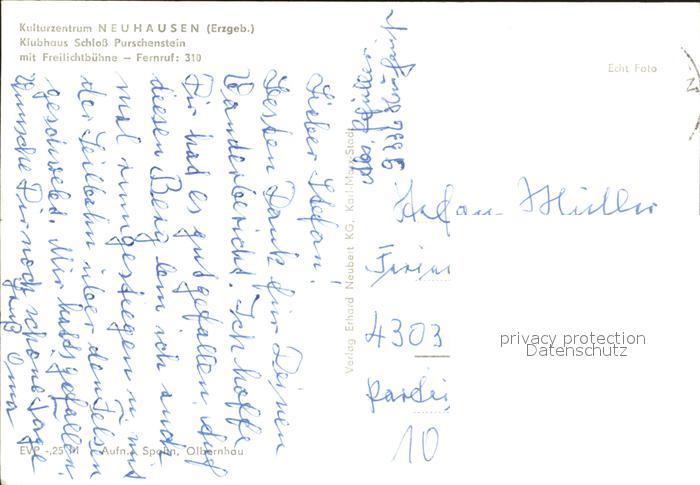 Kulturzentrum NEUHAUSEN (Erzgeb.)
Klubhaus Schloß Purschenstein
mit Freilichtbühne — Fernruf: 310
Echt Foto
Lieber Stefan!
Besten Dank für Deinen
Wanderbericht. Ich hoffe
Dir hat es gut gefallen. Auf
diesen Berg bin ich auch
mal rumgestiegen u. mit
der Seilbahn über den Felsen
geschwebt. Mir hat's gefallen.
Wünsche Dir noch schöne Tage
Gruß Oma
Verlag Erhard Neubert KG, Karl-Marx-Stadt
Stefan Müller
4303
10
privacy protection
Datenschutz
EVP -,25 M Aufn.: Spohn, Olbernhau